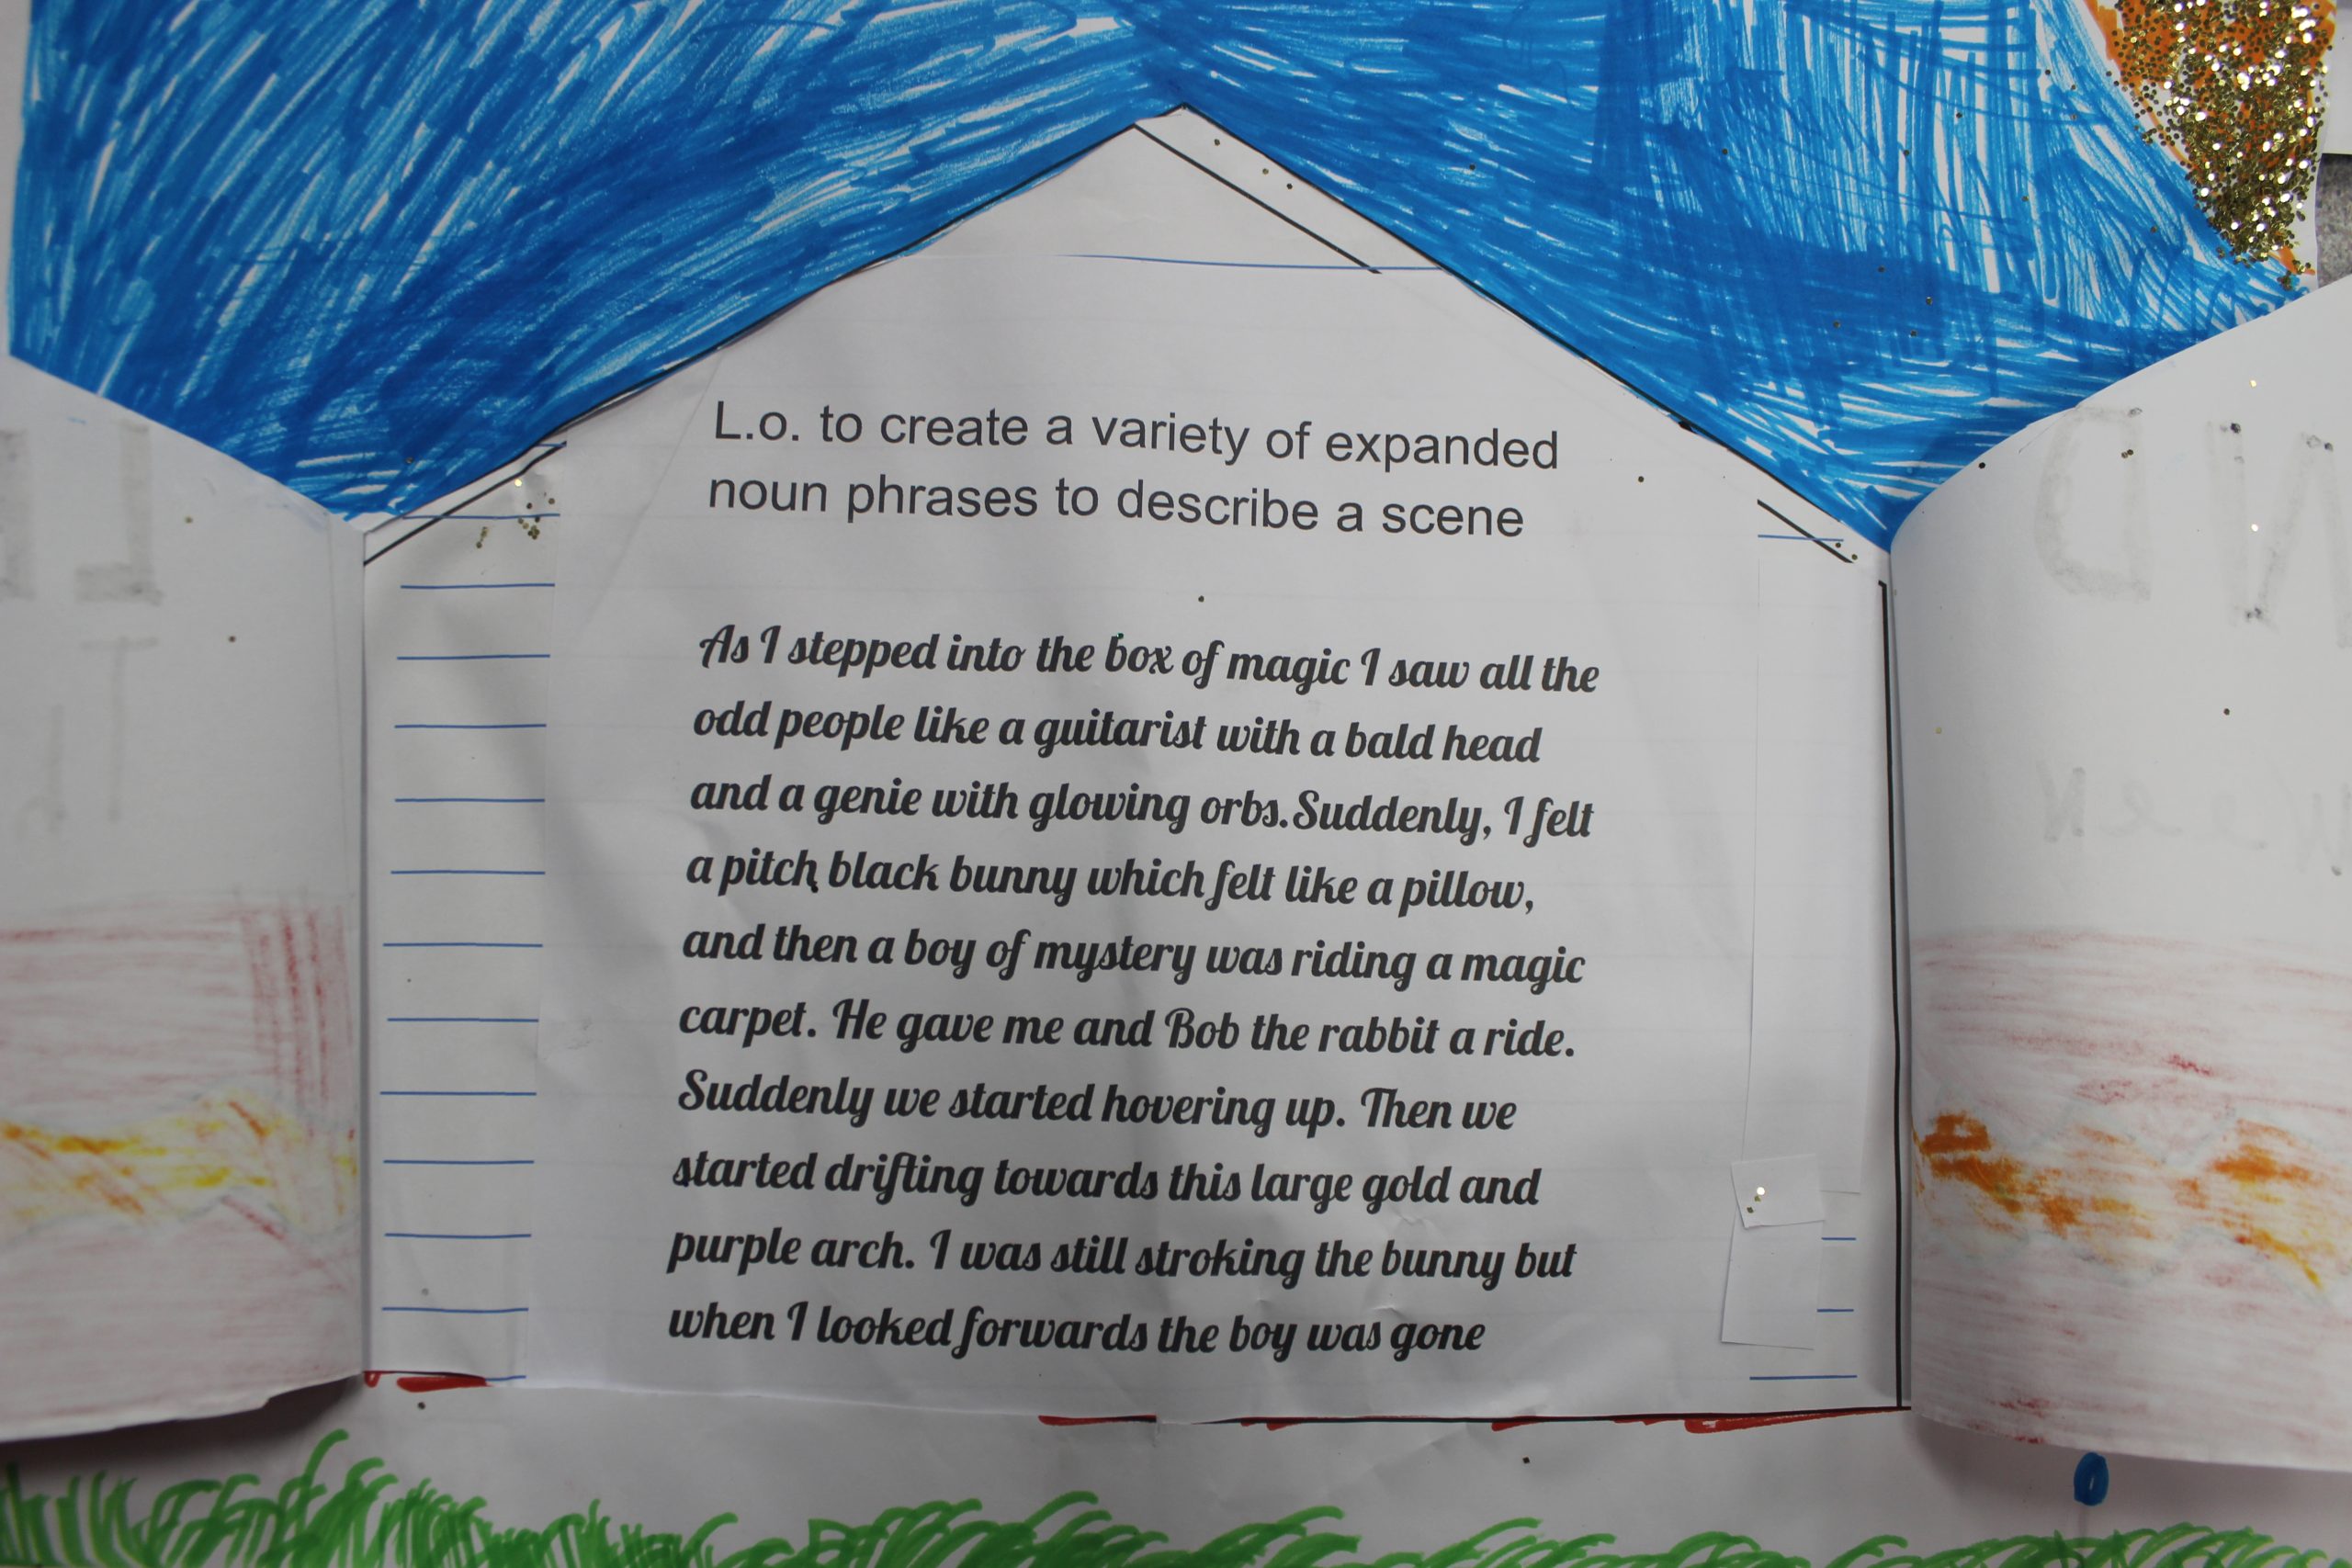 L.o. to create a variety of expanded
noun phrases to describe a scene
As I stepped into the box of magic I saw all the
odd people like a guitarist with a bald head
and a genie with glowing orbs.Suddenly, I felt
a pitch black bunny which felt like a pillow,
and then a boy of mystery was riding a magic
carpet. He gave me and Bob the rabbit a ride.
Suddenly we started hovering up. Then we
started drifting towards this large gold and
purple arch. I was still stroking the bunny but
when I looked forwards the boy was gone